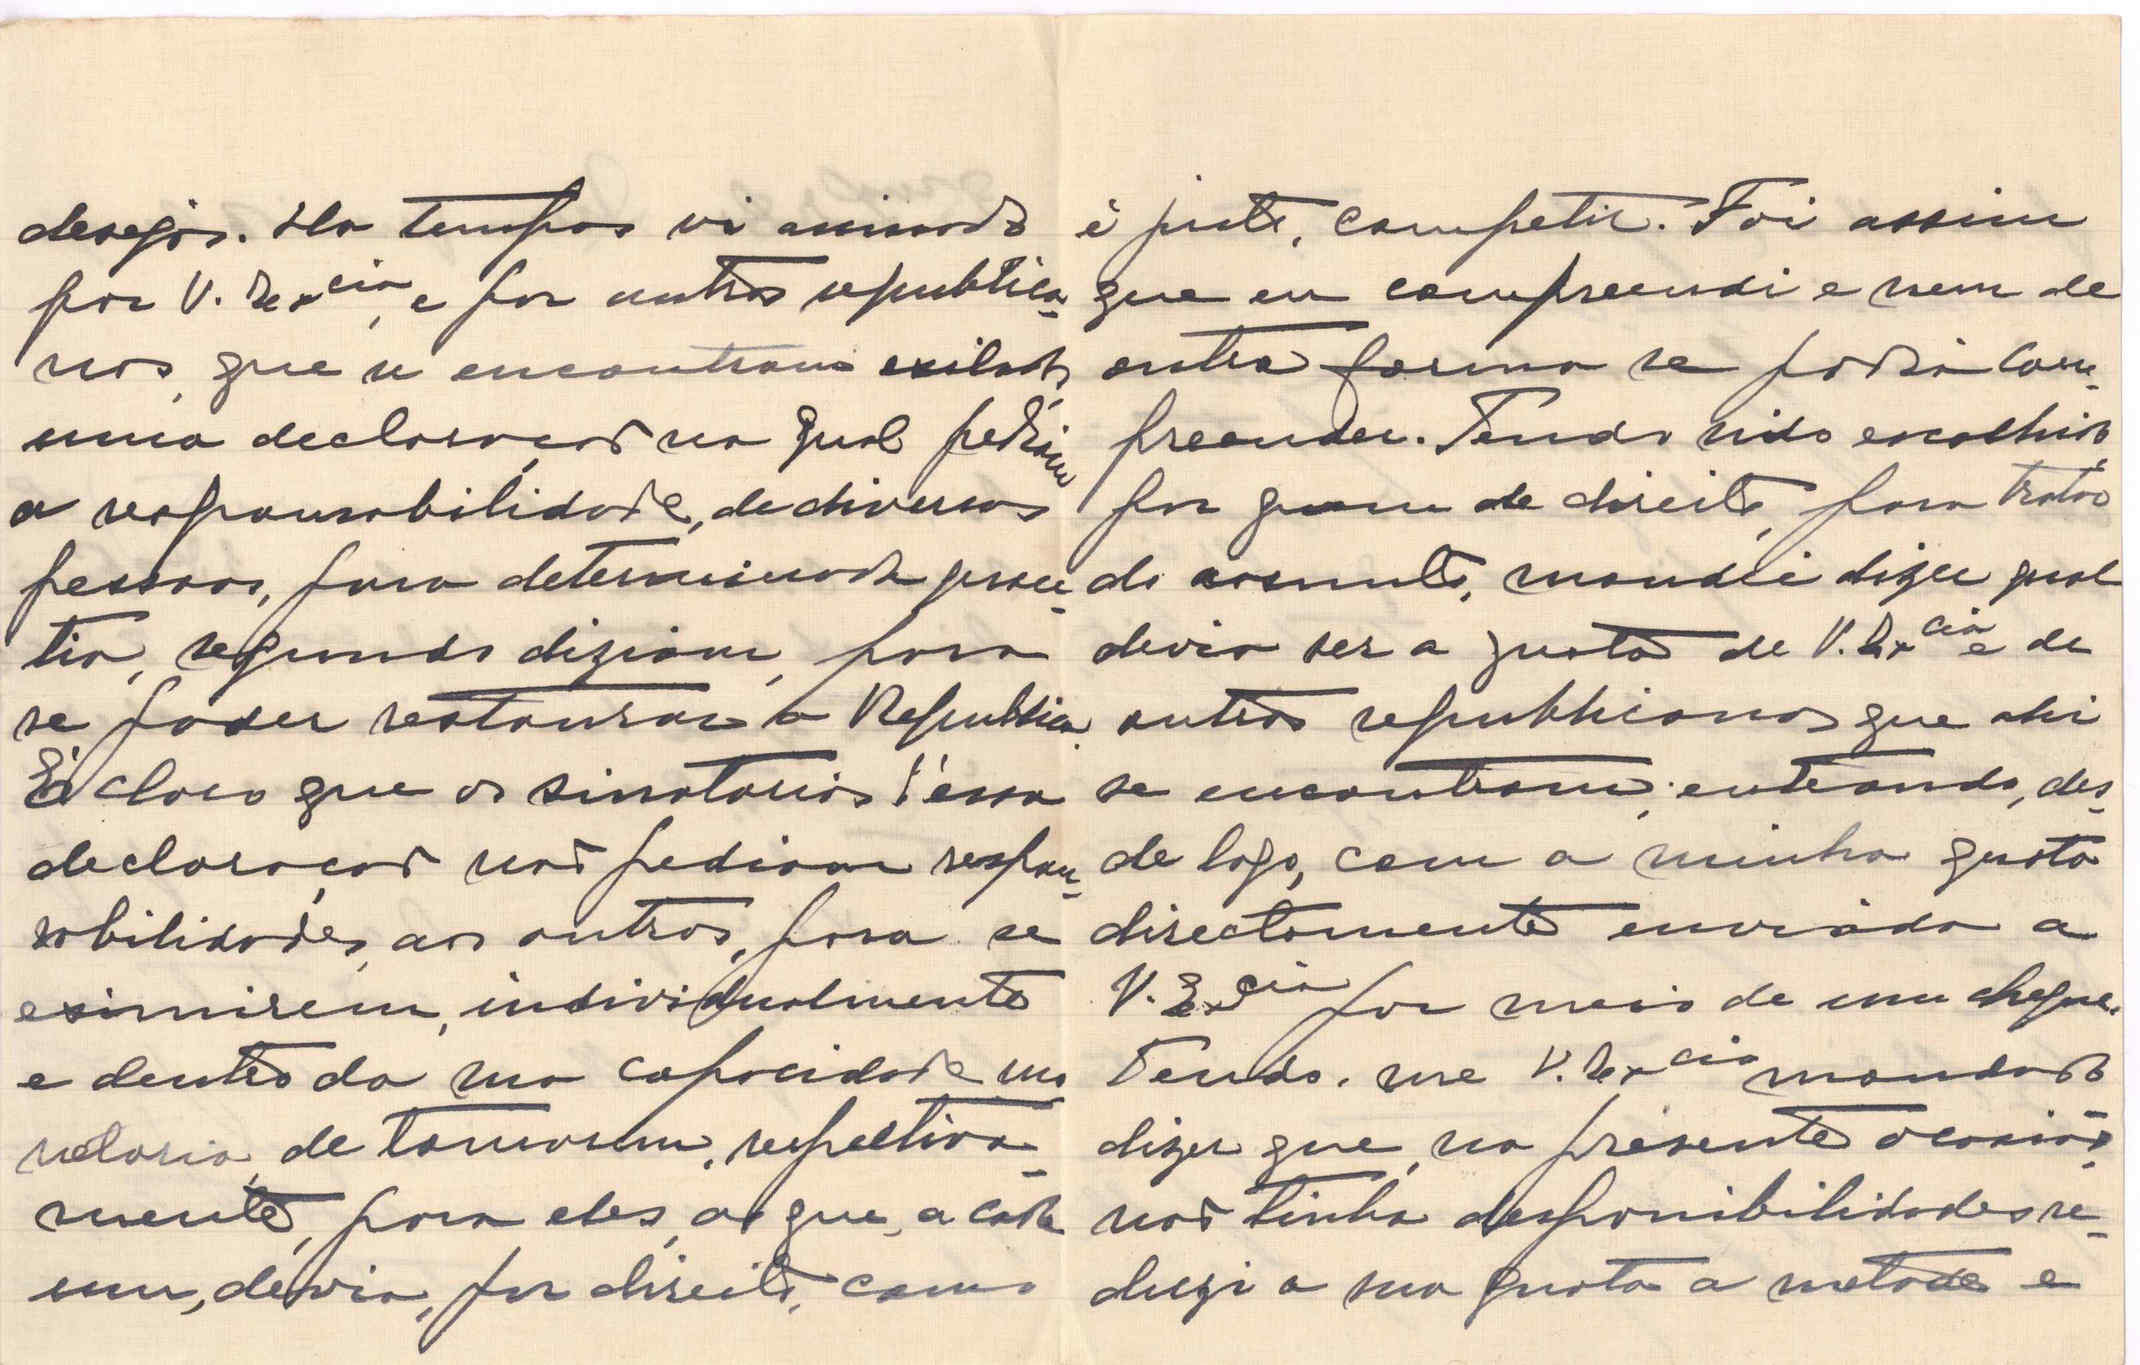 desejos. Ha tempos vi assinado
por V. Ex.cia, e por outros republica-
nos, que se encontram exilados,
uma declaração na qual pediam
a responsabilidade, de diversas
pessoas, para determinada
tia, segundo diziam, para
se poder restaurar a Republica.
É claro que os sinatarios d'essa
declaração não pediam respon-
sabilidades, aos outros, para se
eximirem, individualmente
e dentro da sua capacidade mo
netaria, de tomarem, respectiva-
mente, para eles, as que, a cada
um, devia, por direito, como
é justo, competir. Foi assim
que eu compreendi e nem de
outra forma se podia com-
preender. Tendo sido escolhido,
por quem de direito, para tratar
do assunto, mandei dizer qual
devia ser a quota de V. Ex.cia e de
outros republicanos que ahi
se encontram, entrando, des-
de logo, com a minha quota
directamente enviada a
V. Ex.cia por meio de um cheque.
Tendo-me V. Ex.cia mandado
dizer que, na presente ocasião,
não tinha desponibilidades re-
duzi a sua quota a metade e